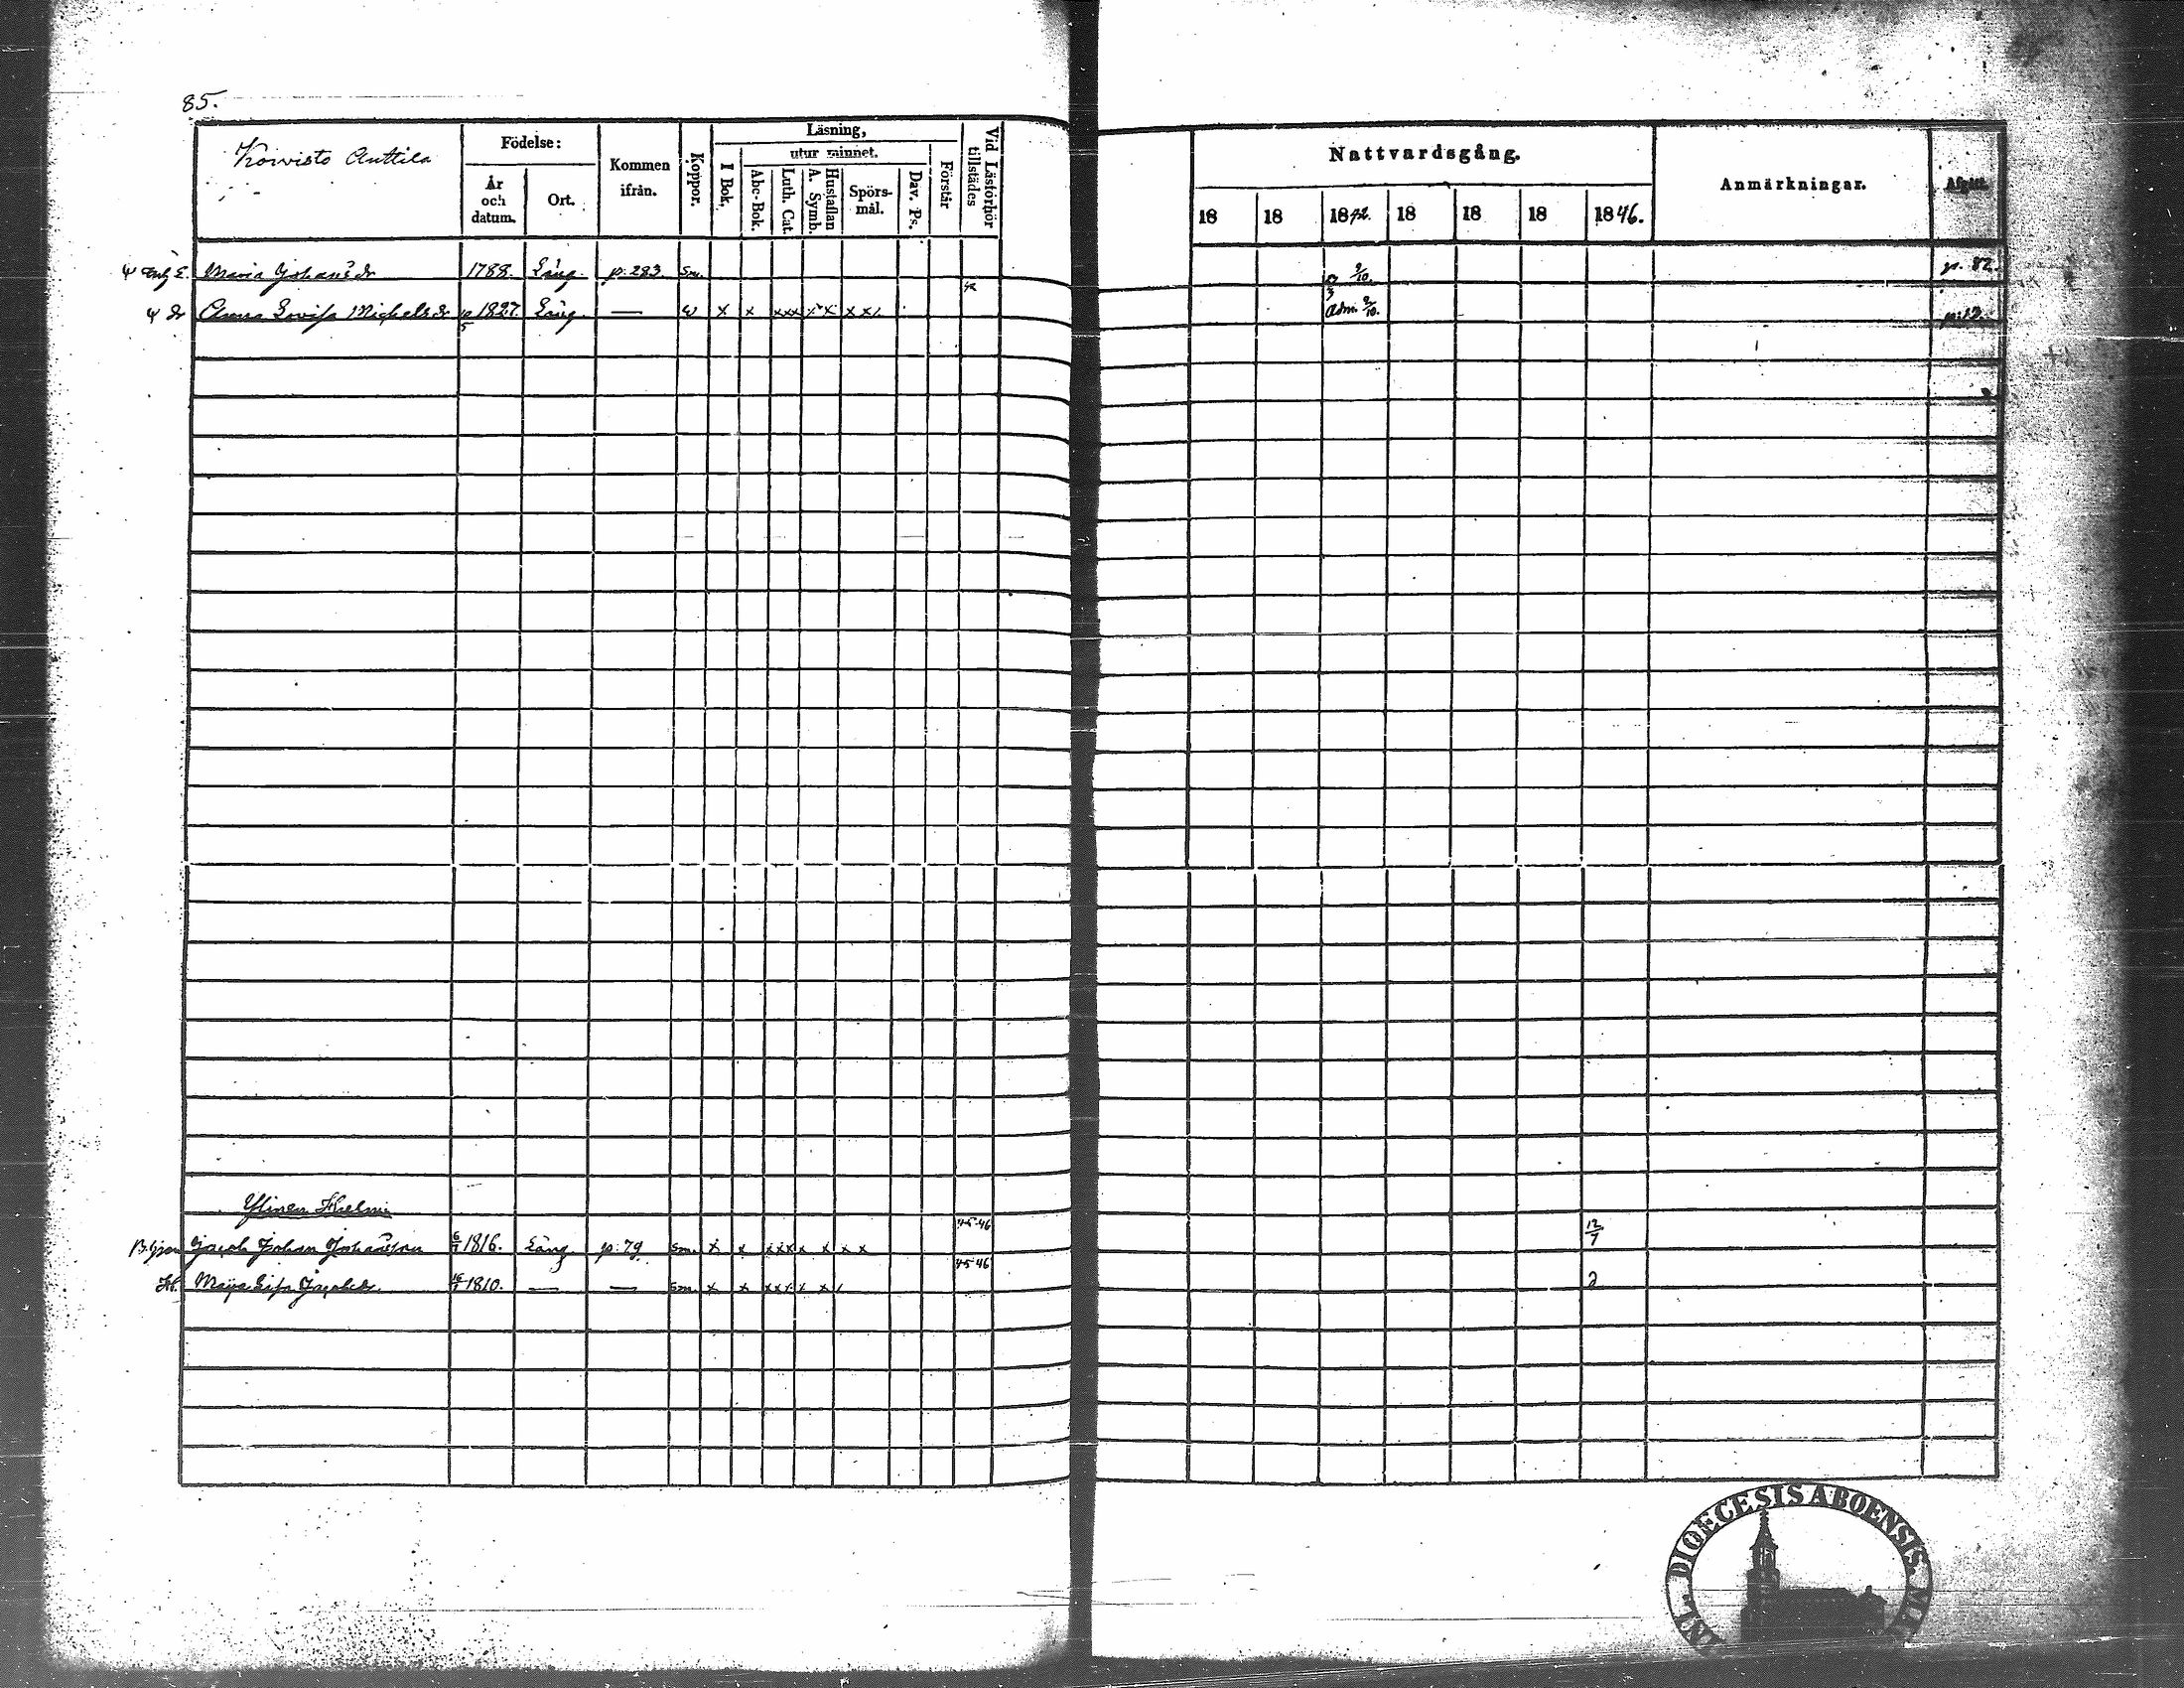 85.
Koivisto Anttila
Födelse:
År och datum.
Ort.
Kommen ifrån.
Koppor.
Läsning,
utur minnet.
I Bok,
Abc-Bok.
Luth. Cat.
Hustaflan A. Symb.
Spörsmål.
Dav. Ps.
Förstår
Vid Läsförhör tillstädes
Nattvardsgång.
18 18 1842. 18 18 18 1846.
Anmärkningar.
Afgått.
Maria Johansdr 1788. Läng. p. 283. sm. 9/10. p. 82.
42
dr Anna Lovisa Michelsdr 1827. Läng. — x x xxx x x x x Adm. 9/10.
Ylinen
45-46
Jacob Johan Johansson 6/7 1816. Läng. p. 79 sm. x x xxx x x x x 12/7
45-46
H. Maja Lisa Jacobsdr 1810. — — sm. x x xxx x x
DIOECESIS ABOENSIS.